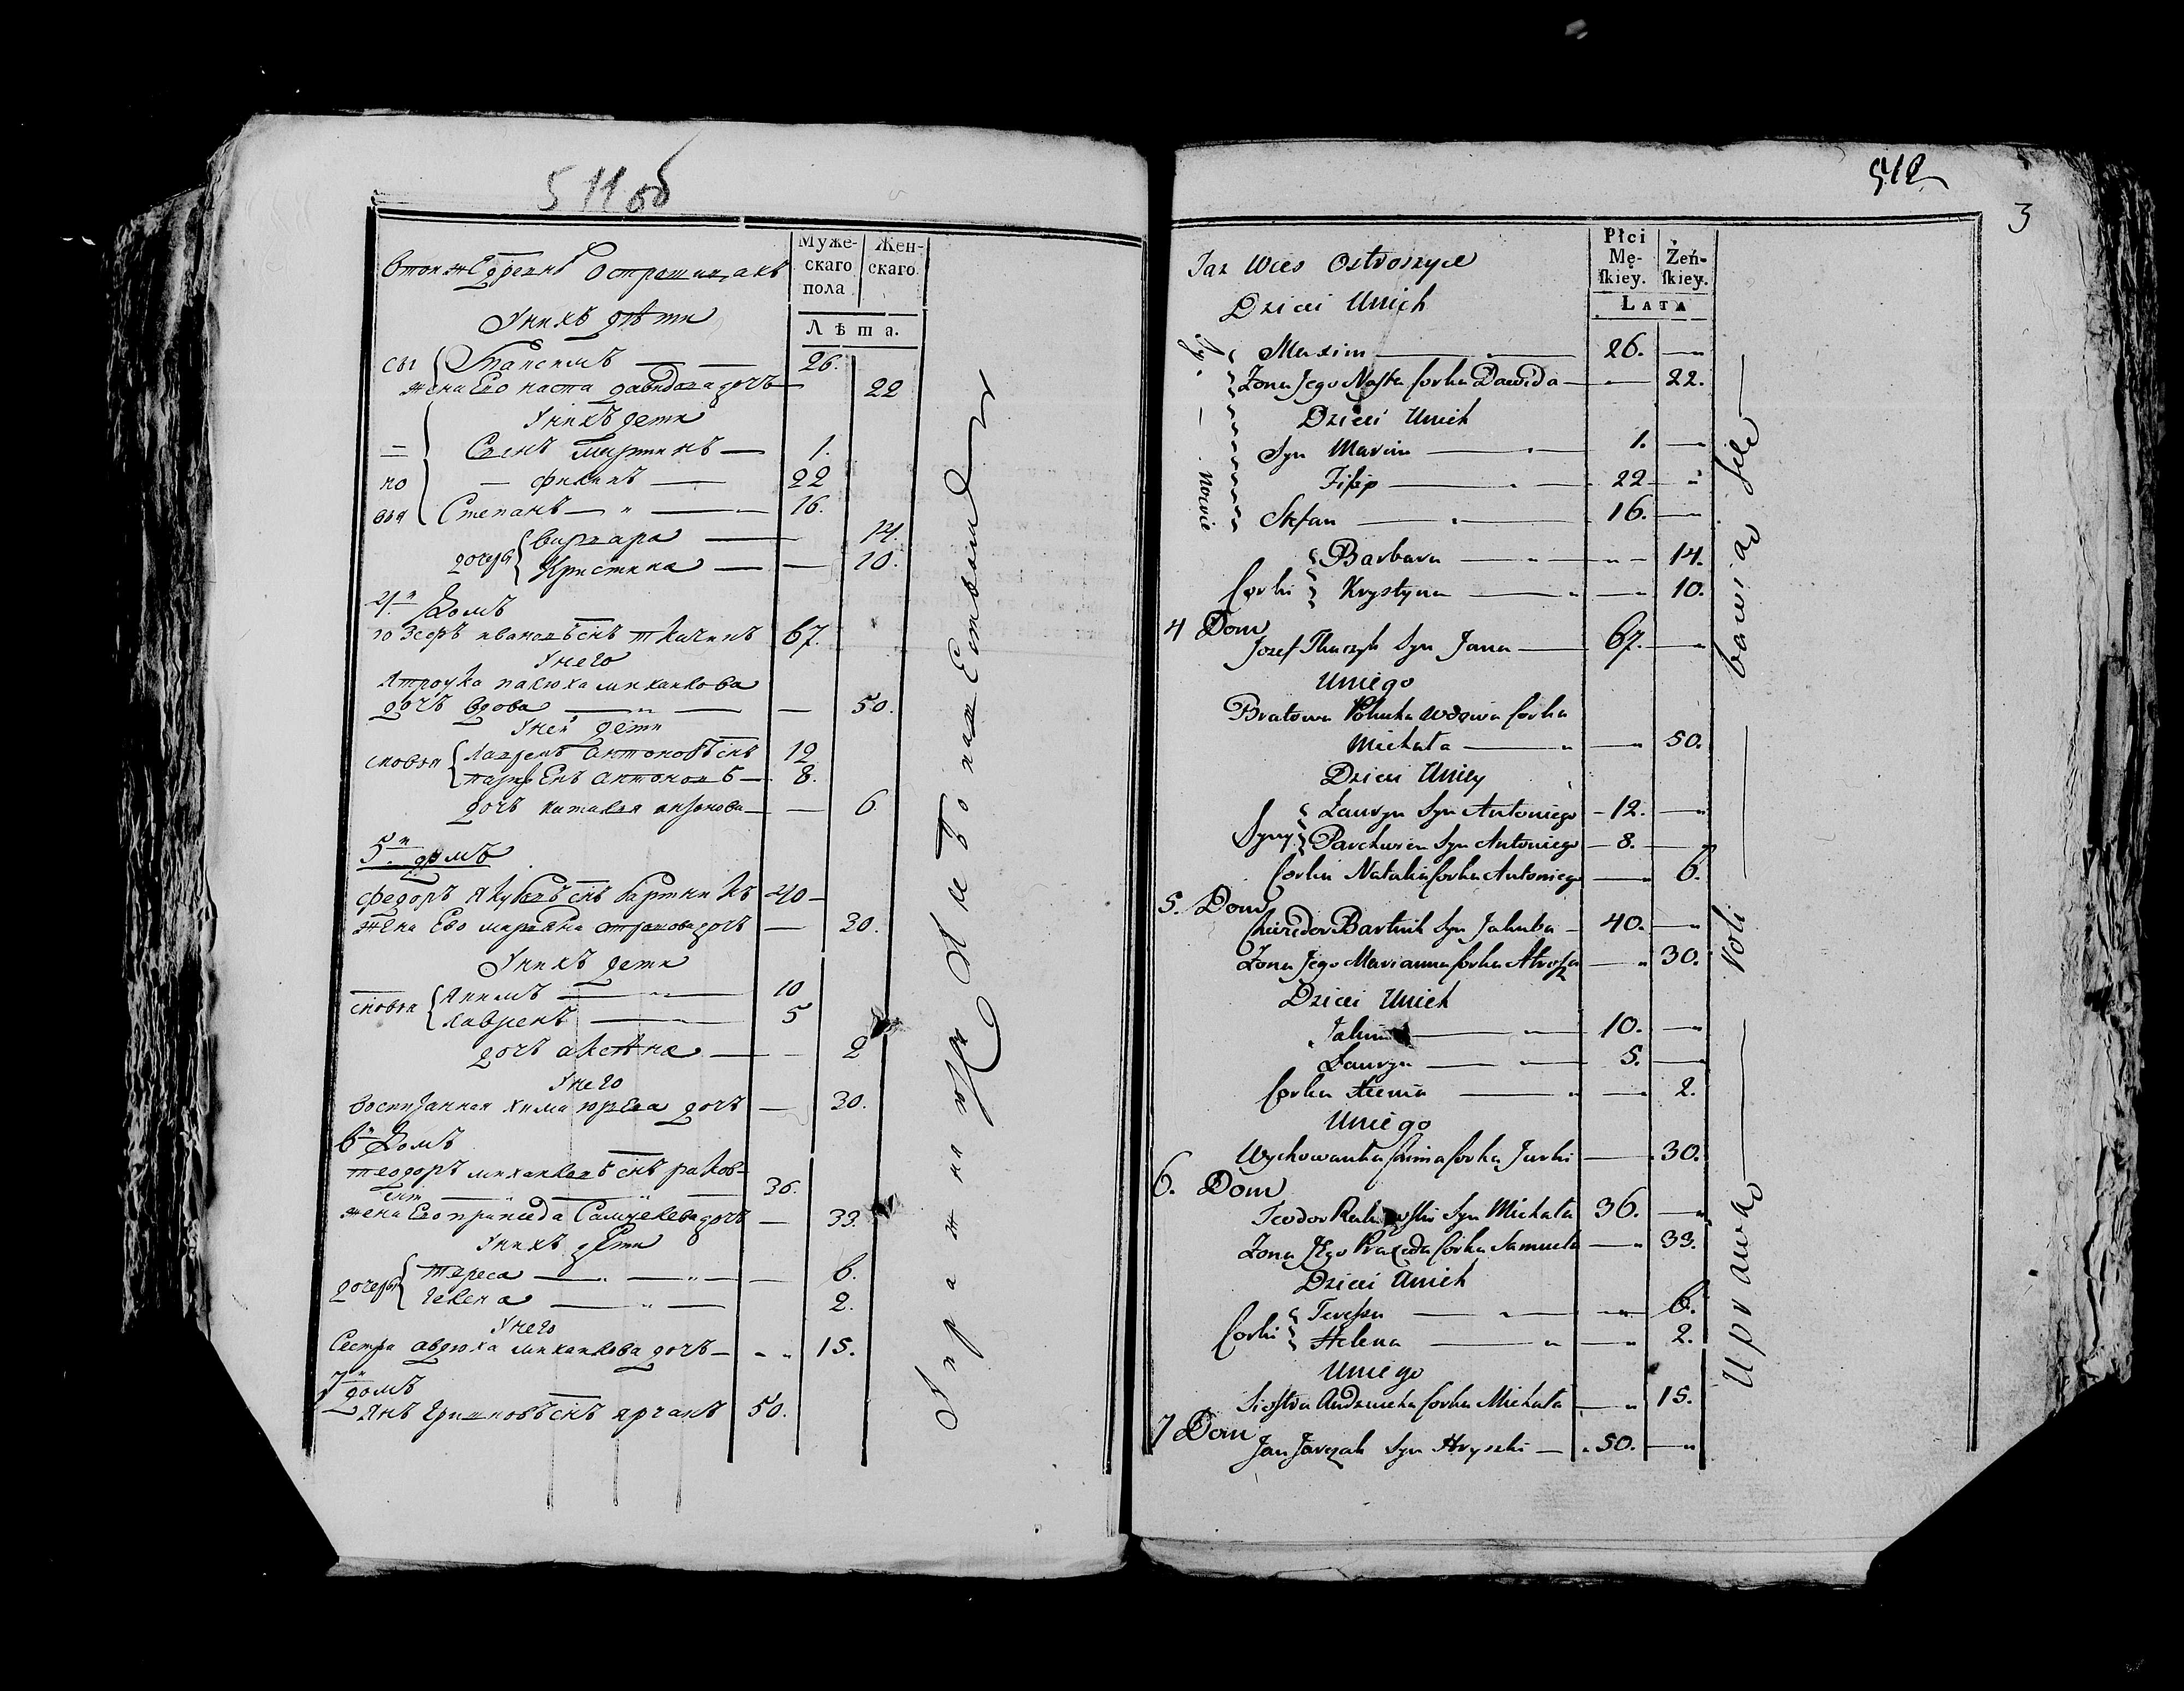 511об
Муже-
скаго
пола
Жен-
скаго.
Лѣта.
Втой же дрвнѣ Острошицахъ
Унихъ дѣти
сы
Маисимъ 26.
жена Его наста давидова дочь 22
Унихъ дети
Сынъ мартинъ 1.
но
филипъ 22
вья
Степанъ 16.
дочерѣ
варвара 14.
Кристина 10.
4й Домъ
юзефъ ивановъ снъ ткачикъ 67.
Унего
ятроука палюха михаилова
дочь вдова 50.
Уней дети
сновья
лавренъ антоновъ снъ 12
парфенъ антоновъ 8.
дочь наталья антонова 6
5й домъ
федоръ якубовъ снъ бартникъ 40
жена Его марьяна дочь 30.
Унихъ дети
сновья
Якимъ 10
лавренъ 5
дочь аксѣня 2
Унего
воспитанная химa юрьева дочь 30.
6й Домъ
теодоръ михаиловъ снъ раков-
36.
жена Его праксeда Самуелева дочь 33.
Унихъ дети
дочерѣ
тереса 6.
гелена 2.
Унего
Сестра авдюха михаилова дочь 15.
7й домъ
Янъ гришковъ снъ ярчакъ 50.
512
3
Płci
Mę-
ſkiey.
Żeń-
ſkiey.
LATA
Taż Wieś Ostroszyce
Dzieci Unich
Sy
nowie
Maxim 26.
Zona Jego Nasta Corka Dawida 22.
Dzieci Unich
Syn Marcin 1.
Filip 22
Stefan 16.
Corki
Barbara 14.
Krystyna 10.
4 Dom
Jozef Tkaczyk Syn Jana 67.
Uniego
Bratowa Poluha Wdowa Corka
Michała 50.
Dzieci Uniey
Syny
Lauryn Syn Antoniego 12.
Parchwien Syn Antoniego 8.
Corka Natalia Corka Antoniego 6.
5. Dom
Chwiedor Bartnik Syn Jakuba 40.
Zona Jego Marianna Corka 30.
Dzieci Unich
Jakim 10.
Lauryn 5.
Corka 2.
Uniego
Wychowanka Chima Corka Jurki 30.
6. Dom
Teodor Rakowski Syn Michała 36.
Zona Jego Praxeda Corka Samuela 33.
Dzieci Unich
Corki
Teressa 6.
Helena 2.
Uniego
Siostra Audziucha Corka Michała 15.
7 Dom
Jan Jarczak Syn Hryszki 50.
Uprawą roli bawią sie